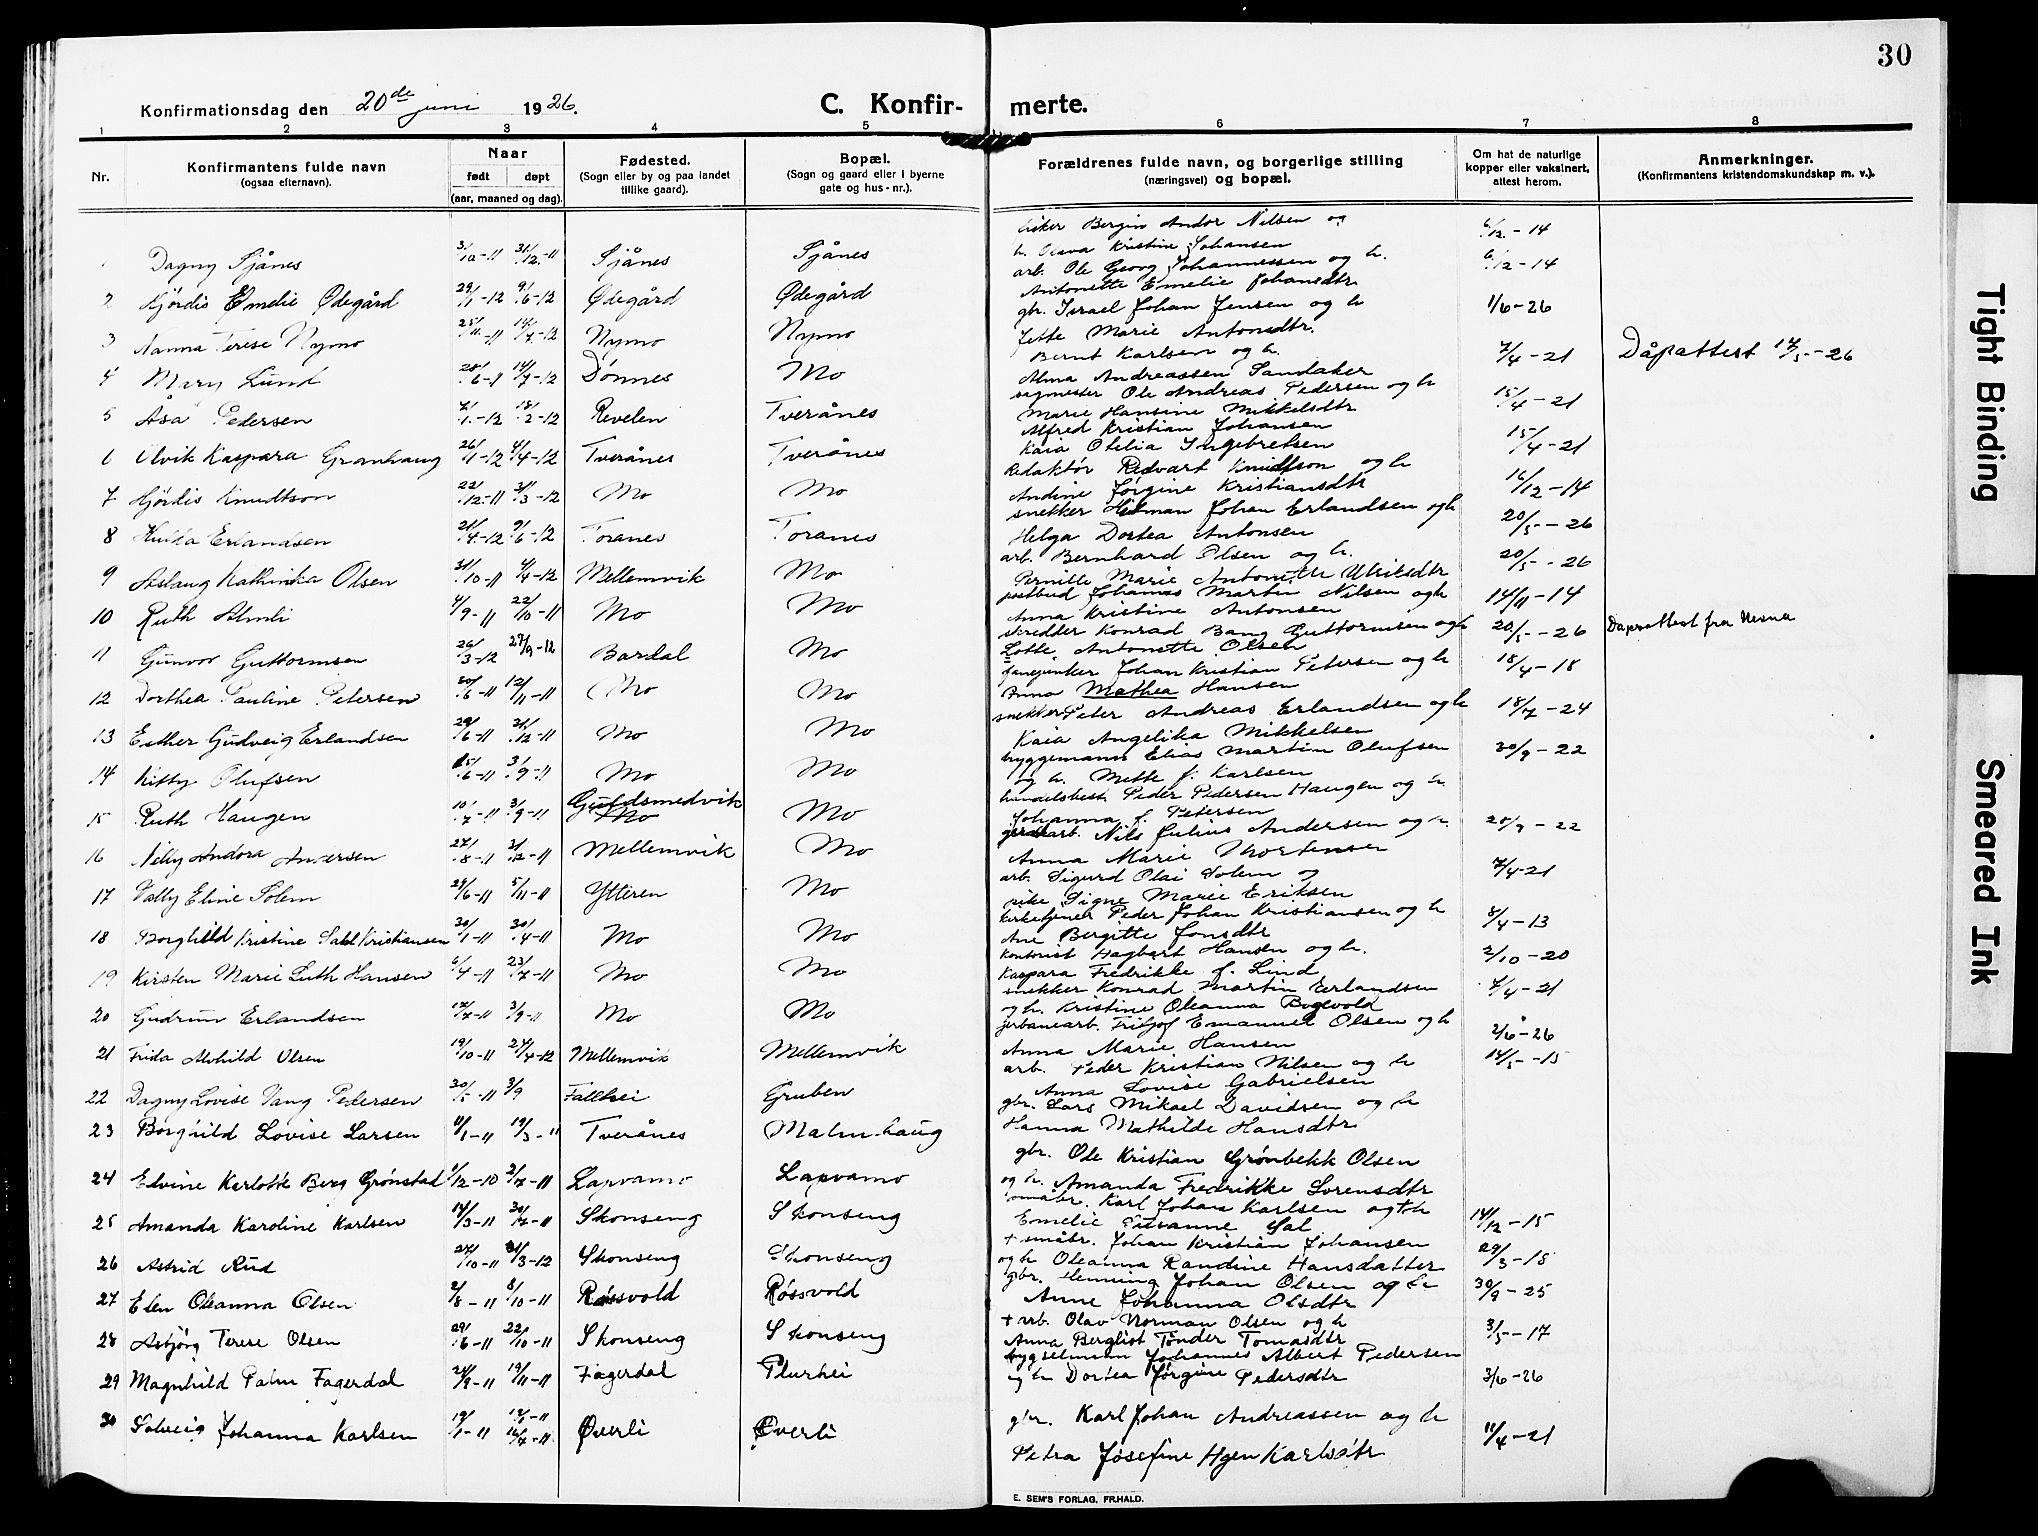 30
Konfirmationsdag den 20de juni 1926.
C. Konfirmerte.
1 2 3 4 5 6 7 8
Nr.
Konfirmantens fulde navn
(ogsaa efternavn).
Naar
født døpt
(aar, maaned og dag).
Fødested.
(Sogn eller by og paa landet
tillike gaard).
Bopæl.
(Sogn og gaard eller i byerne
gate og hus-nr.).
Forældrenes fulde navn, og borgerlige stilling
(næringsvei) og bopæl.
Om hat de naturlige
kopper eller vaksinert,
attest herom.
Anmerkninger.
(Konfirmantens kristendomskundskap m. v.).
1 Dagny Sjånes 3/10-11 31/12-11 Sjånes Sjånes
fisker Bergin Andor Nilsen og
h. Olava Kristine Johansen
6/12-14
2 Hjördis Emelie Ødegård 29/1-12 9/6-12 Ødegård Ødegård
arb. Ole Georg Johannessen og h.
Antonette Emelie Johansdtr
6/12-14
3 Nanna Terese Nymo 25/11-11 14/7-12 Nymo Nymo
gbr. Israel Johan Jensen og h
Jette Marie Antonsdtr.
1/6-26
4 Mary Lund 28/6-11 14/7-12 Dønnes Mo
Bernt Karlsen og h.
Alma Andreassen Sandaker
7/4-21 Dåpattest 14/5-26
5 Åsa Pedersen 7/1-12 18/2-12 Revelen Tverånes
sagmester Ole Andreas Pedersen og h
Marie Hansine Mikkelsdtr
15/4-21
6 Alvik Kaspara Granhaug 26/1-12 4/4-12 Tverånes Tverånes
Alfred Kristian Johansen
Kaia Otelia Ingebretsen
15/4-21
7 Hjördis Knudtson 22/12-11 31/3-12 Mo Mo
Redaktör Redvart Knudtson og h
Andine Jørgine Kristiansdtr
16/12-14
8 Hulda Erlandsen 21/4-12 9/6-12 Toranes Toranes
snekker Hilman Johan Erlandsen og h
Helga Dortea Antonsen
20/5-26
9 Aslaug Kathinka Olsen 31/10-11 4/4-12 Mellemvik Mo
arb. Bernhard Olsen og h.
Pernille Marie Antonette Ulriksdtr
20/5-26
10 Ruth Almli 4/9-11 22/10-11 Mo Mo
postbud Johannes Martin Nilsen og h
Anna Kristine Antonsen
14/11-14
11 Gunvor Guttormsen 26/3-12 27/9-12 Bardal Mo
skredder Konrad Bang Guttormsen og h
Lotte Antonette Olsen
20/5-26 Dåpsattest fra Nesna
12 Dorthea Pauline Petersen 30/6-11 12/11-11 Mo Mo
fanejunker Johan Kristian Petersen og h
Anna Mathea Hansen
18/4-18
13 Esther Gudveig Erlandsen 29/6-11 31/12-11 Mo Mo
snekker Peter Andreas Erlandsen og h
Kaia Angelika Mikkelsen
18/7-24
14 Kitty Olufsen 15/6-11 3/9-11 Mo Mo
bryggemann Elias Martin Olufsen
og h. Mette f. Karlsen
30/9-22
15 Ruth Haugen 10/7-11 3/9-11 Guldsmedvik Mo Mo
handelsbest. Peder Pedersen Haugen og h.
Johanna f. Petersen
16 Nelly Andora Andersen 27/8-11 31/12-11 Mellemvik Mo
arb. Nils Julius Andersen og h.
Anna Marie Mortensen
20/9-22
17 Vally Eline Solem 29/6-11 5/11-11 Ytteren Mo
arb. Sigurd Olai Solem og
pike Signe Marie Eriksen
7/4-21
18 Borghild Kristine Dahl Kristiansen 30/1-11 30/4-11 Mo Mo
kirketjener Peder Johan Kristiansen og h
Ane Bergitte Jonsdtr
8/4-13
19 Kirsten Marie Luth Hansen 6/4-11 23/7-11 Mo Mo
kontorist Hagbart Hansen og h.
Kaspara Fredrikke f. Lind
2/10-20
20 Gudrun Erlandsen 17/7-11 3/9-11 Mo Mo
snekker Konrad Martin Erlandsen
og h. Kristine Oleanna Bogevold
7/4-21
21 Frida Alvhild Olsen 19/10-11 24/4-12 Mellemvik Mellemvik
jerbanearb. Fritjof Emanuel Olsen og h
Anna Marie Hansen
2/6-26
22 Dagny Lovise Vang Pedersen 30/5-11 3/9 Fallhei Gruben
arb. Peder Kristian Nilsen og h
Anna Lovise Gabrielsen
14/5-15
23 Borghild Lovise Larsen 11/1-11 19/3-11 Tverånes Malmhaug
gbr. Lars Mikael Davidsen og h
Hanna Mathilde Hansdtr
24 Edvine Karlotte Berg Grønstad 1/12-10 2/7-11 Lapvamo Lapvamo
gbr. Ole Kristian Grønbekk Olsen
og h. Amanda Fredrikke Sorensdtr
25 Amanda Karoline Karlsen 14/3-11 30/7-11 Skonseng Skonseng
småbr. Karl Johan Karlsen og h
Emelie Susanne Sal
14/12-15
26 Astrid Rud 27/10-11 31/3-12 Skonseng Skonseng
+ småbr. Johan Kristian Johansen
og h Oleanna Randine Hansdatter
29/3-18
27 Elen Oleanna Olsen 2/8-11 8/10-11 Røssvold Røssvold
gbr. Henning Johan Olsen og h
Anne Johanna Olsdtr
30/9-25
28 Asbjørg Terese Olsen 29/6-11 22/10-11 Skonseng Skonseng
+ arb. Olav Norman Olsen og h
Anna Berglist Tønder Tomasdtr
3/5-17
29 Magnhild Palm Fagerdal 24/9-11 19/11-11 Fagerdal Plurhei
bygselmann Johannes Albert Pedersen
og h Dortea Jørgine Pedersdtr
3/6-26
30 Solveig Johanna Karlsen 19/1-11 12/1-11 16/7-11 Øverli Øverli
gbr. Karl Johan Andreassen og h
Petra Josefine Hgen Karlsdtr
11/4-21
E. SEM'S FORLAG, FR.HALD.
Tight Binding
Smeared Ink